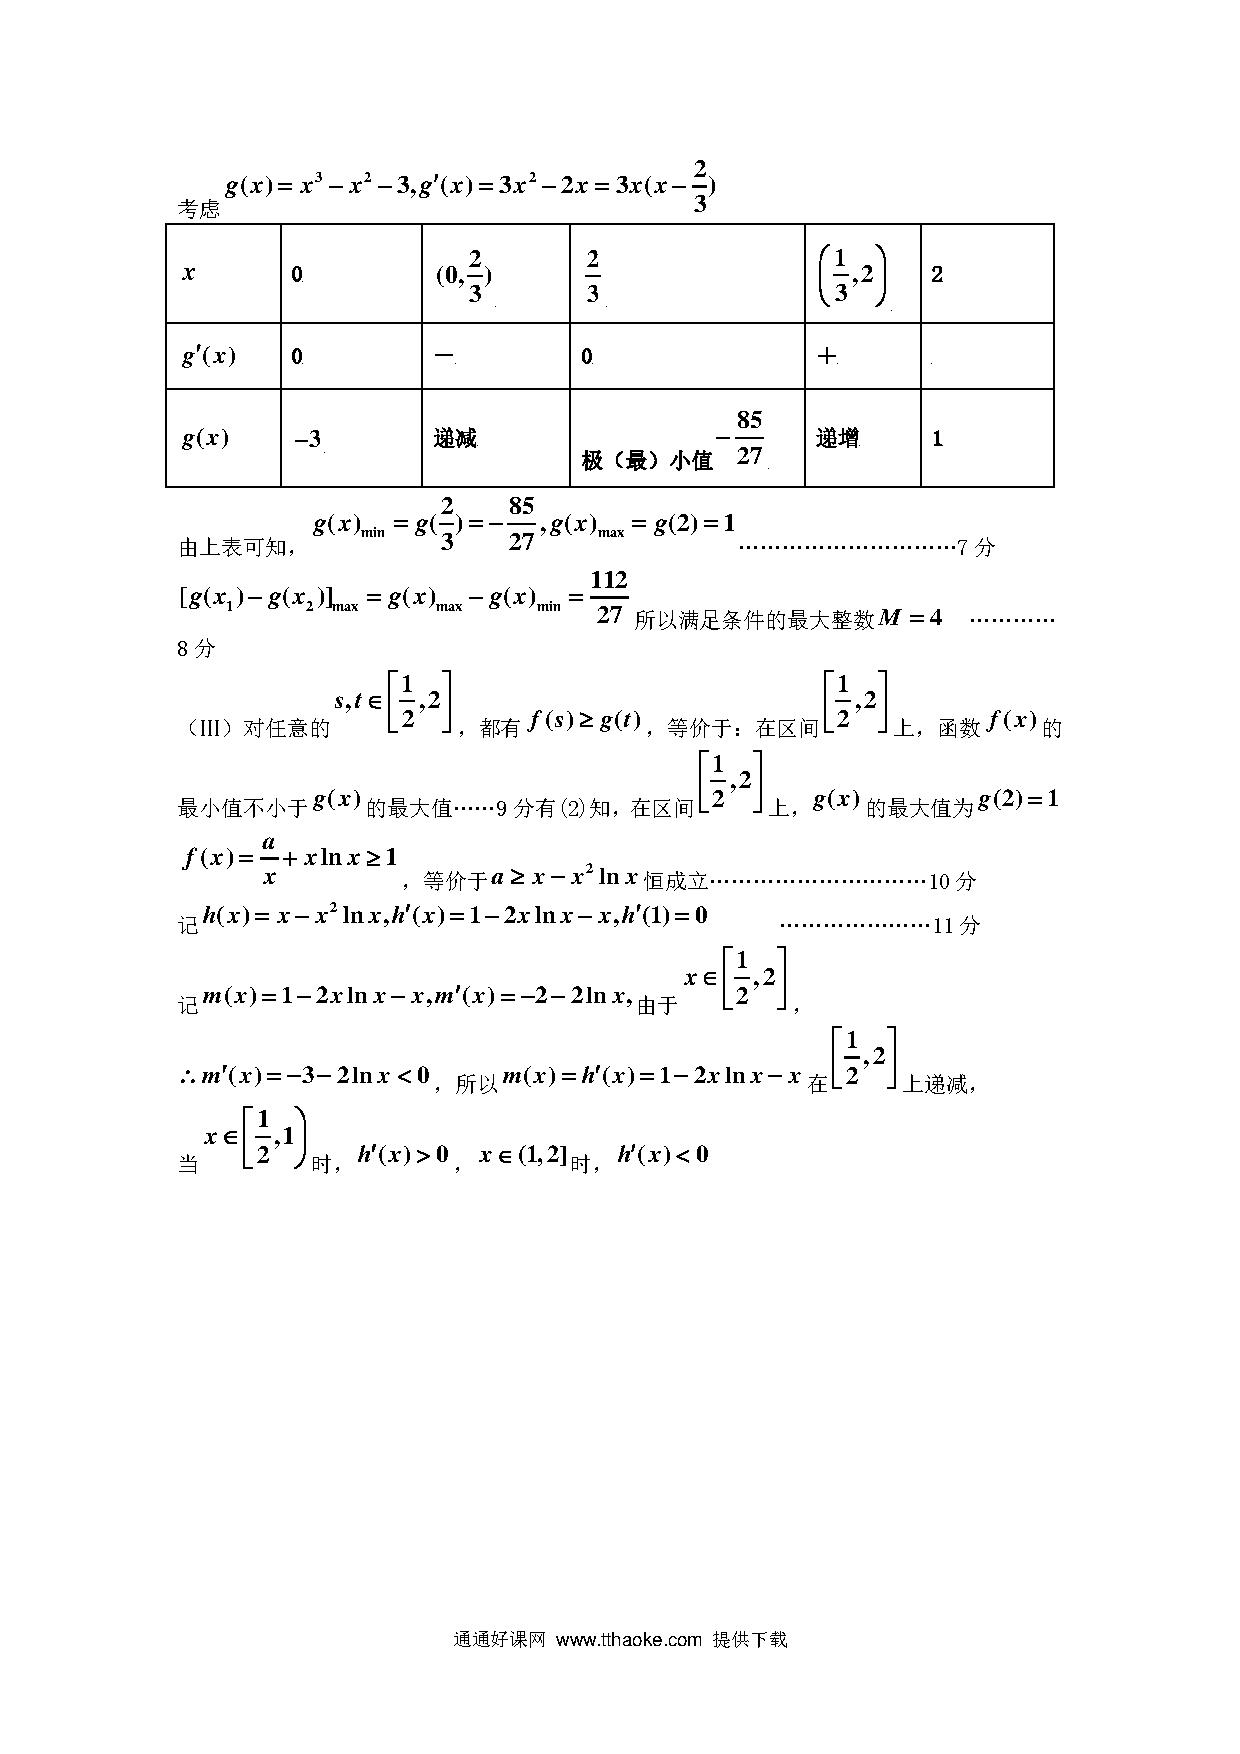 考虑 g(x) = x³ − x² − 3, g′(x) = 3x² − 2x = 3x(x − 2/3)
x 0 (0, 2/3) 2/3 (1/3, 2) 2
g′(x) 0 － 0 ＋
g(x) −3 递减 极（最）小值 −85/27 递增 1
由上表可知，g(x)min = g(2/3) = −85/27, g(x)max = g(2) = 1 …………………………7 分
[g(x₁) − g(x₂)]max = g(x)max − g(x)min = 112/27 所以满足条件的最大整数 M = 4 …………
8 分
（III）对任意的 s,t ∈ [1/2, 2]，都有 f(s) ≥ g(t)，等价于：在区间 [1/2, 2] 上，函数 f(x) 的
最小值不小于 g(x) 的最大值……9 分有(2)知，在区间 [1/2, 2] 上，g(x) 的最大值为 g(2) = 1
f(x) = a/x + x ln x ≥ 1，等价于 a ≥ x − x² ln x 恒成立…………………………10 分
记 h(x) = x − x² ln x, h′(x) = 1 − 2x ln x − x, h′(1) = 0 …………………11 分
记 m(x) = 1 − 2x ln x − x, m′(x) = −2 − 2ln x, 由于 x ∈ [1/2, 2]，
∴ m′(x) = −3 − 2ln x < 0，所以 m(x) = h′(x) = 1 − 2x ln x − x 在 [1/2, 2] 上递减，
当 x ∈ [1/2, 1) 时，h′(x) > 0，x ∈ (1, 2] 时，h′(x) < 0
通通好课网 www.tthaoke.com 提供下载